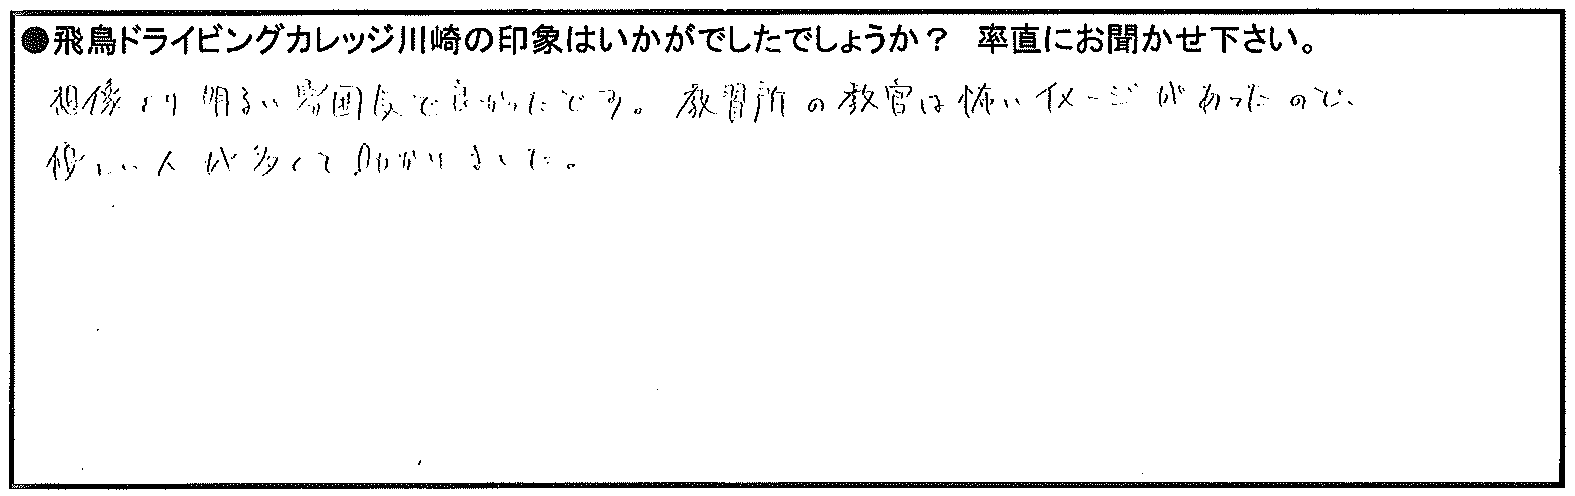 ●飛鳥ドライビングカレッジ川崎の印象はいかがでしたでしょうか？　率直にお聞かせ下さい。
想像より明るい雰囲気で良かったです。教習所の教官は怖いイメージがあったので、
優しい人が多くて助かりました。